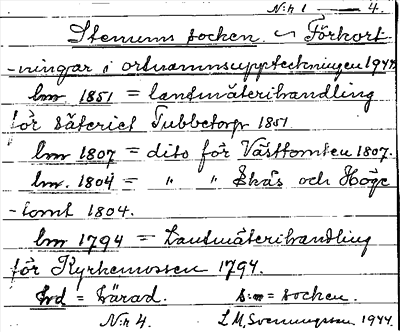 N:r 1 — 4.
Stenums socken. ~ Förkort-
-ningar i ortnamnsuppteckningen 1944.
lm 1851 = lantmäterihandling
för säteriet Tubbetorp 1851.
lm 1807 = dito för Västtomten 1807.
lm. 1804 = " " Skås och Höge
-tomt 1804.
lm 1794 = Lantmäterihandling
för Kyrkemossen 1794.
hrd = härad. s:n = socken.
N:r 4. L.M. Svenungsson 1944.